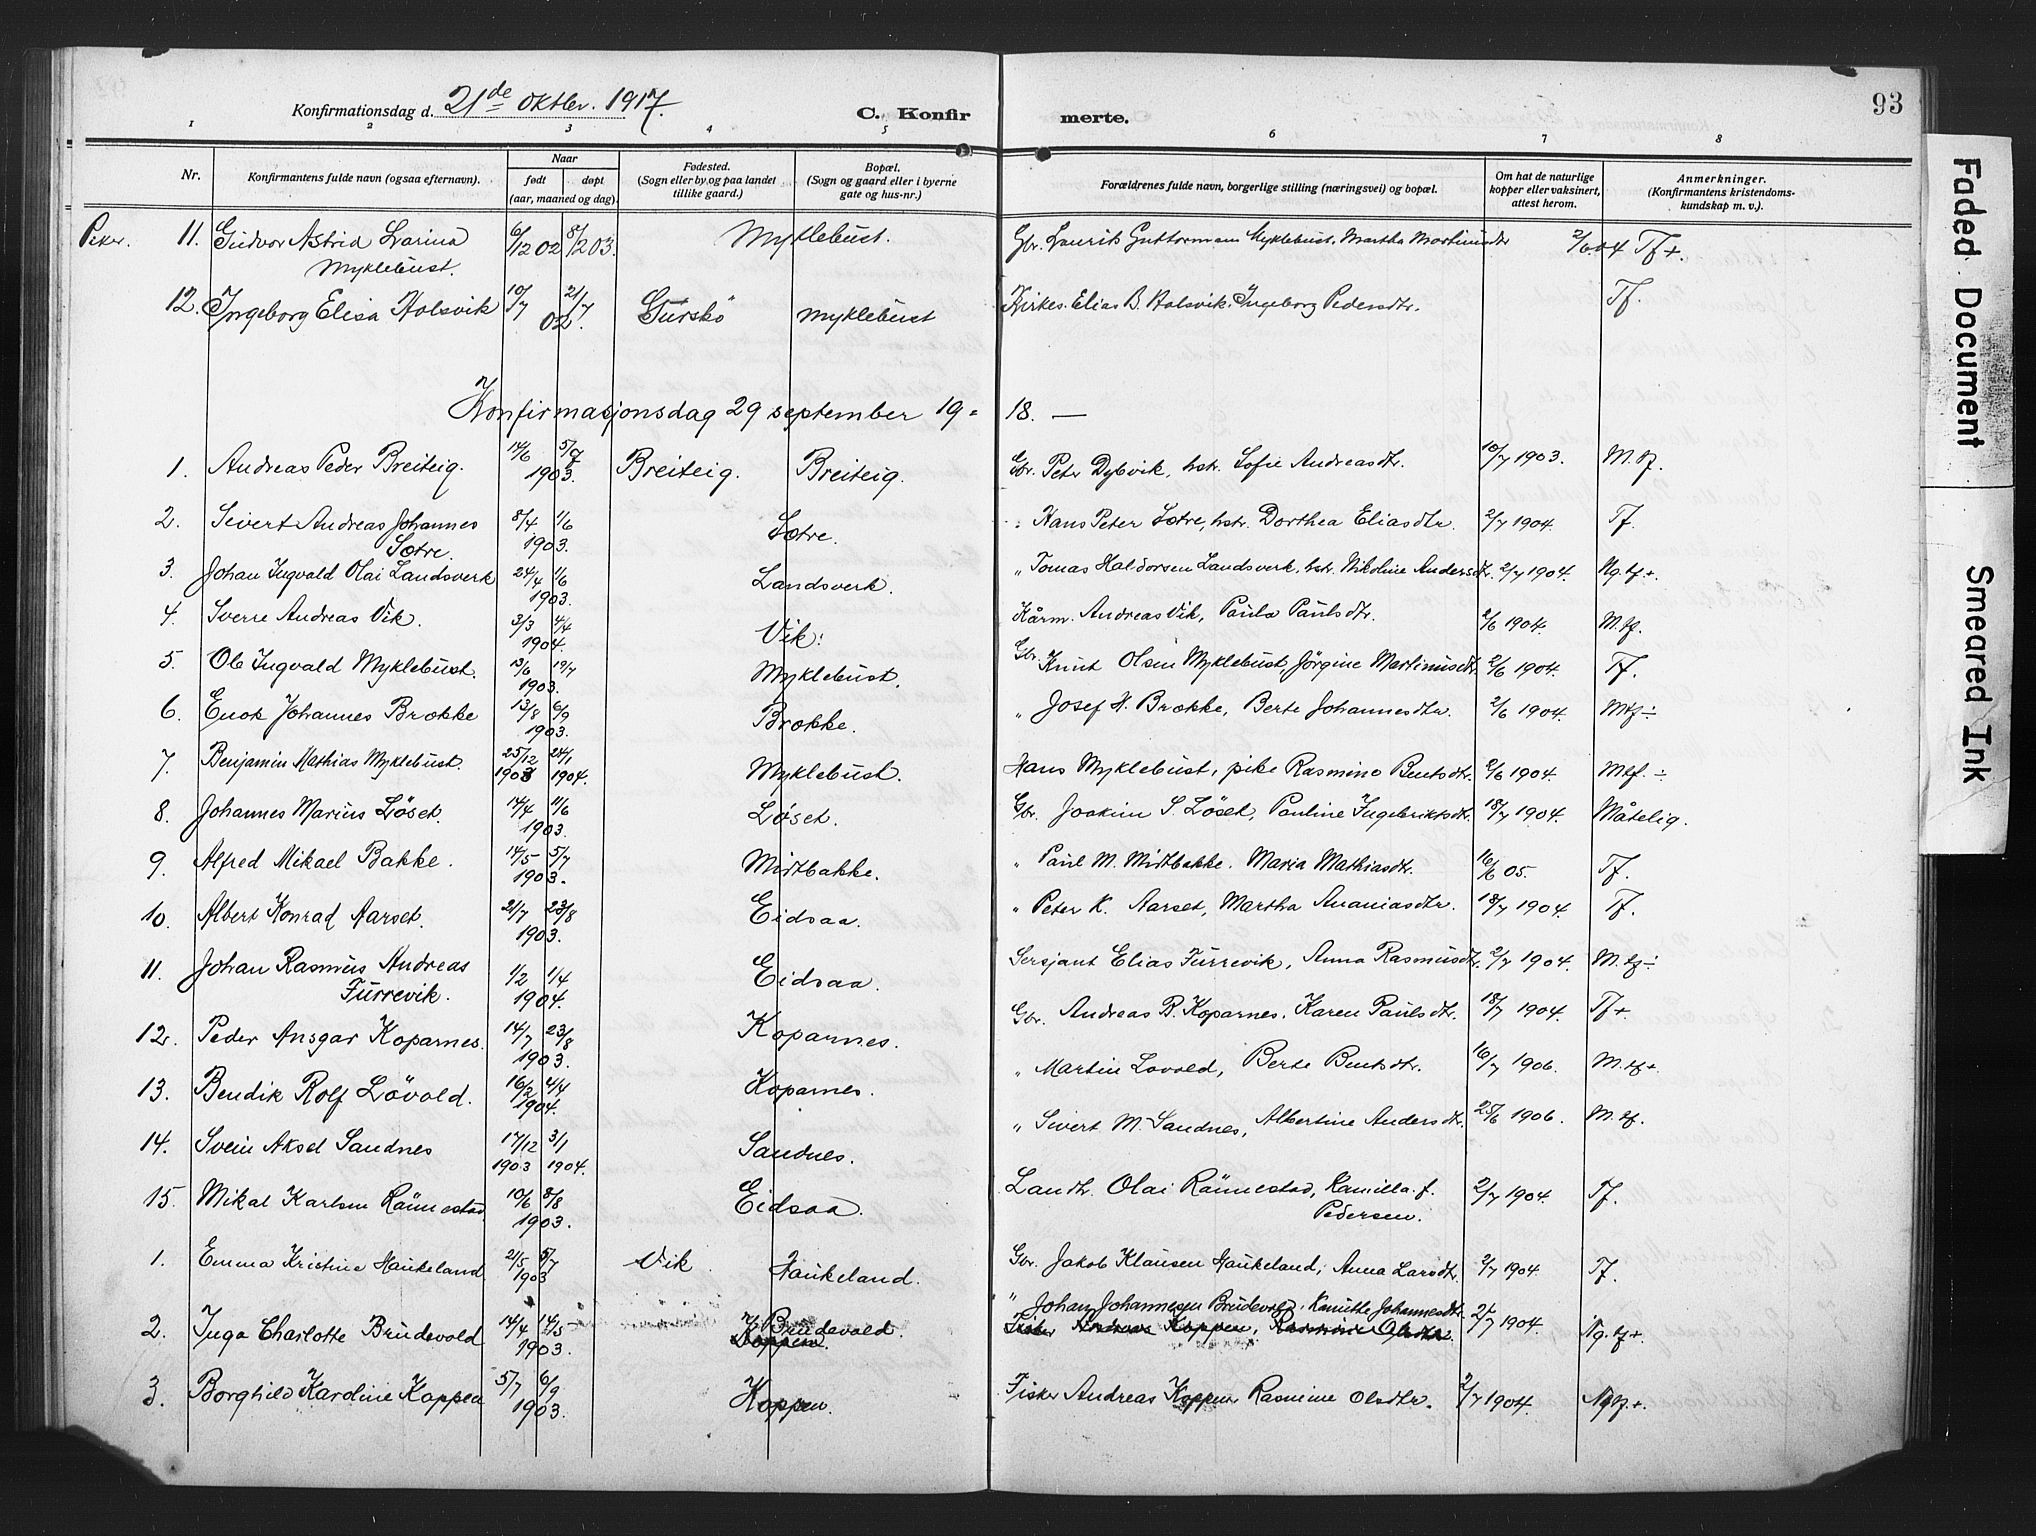 93
Konfirmationsdag d. 21de oktbr. 1917.
C. Konfirmerte.
1 2 3 4 5 6 7 8
Nr.
Konfirmantens fulde navn (ogsaa efternavn).
Naar
født døpt
(aar, maaned og dag).
Fødested.
(Sogn eller by og paa landet
tillike gaard.)
Bopæl.
(Sogn og gaard eller i byerne
gate og hus-nr.)
Forældrenes fulde navn, borgerlige stilling (næringsvei) og bopæl.
Om hat de naturlige
kopper eller vaksinert,
attest herom.
Anmerkninger.
(Konfirmantens kristendoms-
kundskap m. v.).
Piker. 11. Gudvor Astrid Larina 6/12 02 8/2 03. Myklebust. Gbr. Laurits Guttormsen Myklebust. Martha Martinusdtr 2/6 04 Tf+.
Myklebust.
12. Ingeborg Elisa Holsvik 10/7 21/7 02. Gurskö Myklebust Kirkes. Elias B. Holsvik. Ingeborg Pedersdtr. Tf.
Konfirmasjonsdag 29 september 19= 18. —
1. Andreas Peder Breiteig. 14/6 5/7 1903. Breiteig. Breiteig. Gbr. Peter Dybvik, hstr. Sofie Andreasdtr. 10/7 1903. M.tf.
2. Sivert Andreas Johannes 8/4 1/6 1903. Sætre. " Hans Peter Sætre, hstr. Dorthea Eliasdtr. 2/7 1904. Tf.
Sætre.
3. Johan Ingvald Olai Landsverk 24/4 1/6 1903. Landsverk. " Tomas Haldorsen Landsverk, hstr. Nikoline Andersdtr. 2/7 1904. Mg.tf+.
4. Sverre Andreas Vik. 3/3 4/4 1904. Vik. Kårm. Andreas Vik, Paula Paulsdtr. 2/6 1904. M.tf.
5. Ole Ingvald Myklebust. 13/6 19/7 1903. Myklebust. Gbr. Knut Olsen Myklebust, Jörgine Martinusdtr. 2/6 1904. Tf.
6. Enok Johannes Brække 13/8 6/9 1903. Brække. " Josef H. Brække, Berte Johannesdtr. 2/6 1904. Mtf÷
7. Benjamin Mathias Myklebust. 25/12 1903 24/1 1904. Myklebust. Hans Myklebust, pike Rasmine Bentsdtr. 2/6 1904. Mtf.÷
8. Johannes Marius Löset. 14/4 11/6 1903. Løset. Gbr. Joakim S. Löset, Pauline Ingebriktsdtr. 18/7 1904. Måtelig.
9. Alfred Mikael Bakke. 14/5 5/7 1903. Midtbakke. " Paul M. Midtbakke. Maria Mathiasdtr. 16/6 05. Tf.
10. Albert Konrad Aarset. 21/7 23/8 1903. Eidsaa. " Peter K. Aarset, Martha Ananiasdtr. 18/7 1904. Tf.
11. Johan Rasmus Andreas 1/2 1/4 1904. Eidsaa. Sersjant Elias Furrevik, Anna Rasmusdtr. 2/7 1904. M.tf÷
Furrevik.
12. Peder Ansgar Koparnes. 14/7 23/8 1903. Koparnes. Gbr. Andreas B. Koparnes, Karen Paulsdtr. 18/7 1904. Tf+.
13. Bendik Rolf Lövold. 16/2 4/4 1904. Koparnes. " Martin Lovold, Berte Bentsdtr. 16/7 1906. M.tf+.
14. Svein Aksel Sandnes 17/12 1903 3/1 1904. Sandnes. " Sivert M. Sandnes, Albertine Andersdtr. 25/6 1906. M.tf.
15. Mikal Karlsen Rønnestad. 10/6 8/8 1903. Eidsaa. Landh. Olai Rønnestad, Kamilla f. 2/7 1904. Tf.
Pedersen.
1. Emma Kristine Haukeland 21/5 5/7 1903 Vik. Haukeland. Gbr. Jakob Klausen Haukeland, Anna Larsdtr. 2/7 1904. Tf.
" Johan Johannesen Brudevold, Kanutte Johannesdtr.
2. Inga Charlotte Brudevold 14/4 14/5 1903. Brudevold. Koppen. Fisker Andreas Koppen, Rasmine Olsdtr. 2/7 1904. Ng.tf+.
3. Borghild Karoline Koppen 5/7 6/9 1903. Koppen. Fisker Andreas Koppen Rasmine Olsdtr. 2/7 1904. Ngtf.+.
Faded Document
Smeared Ink